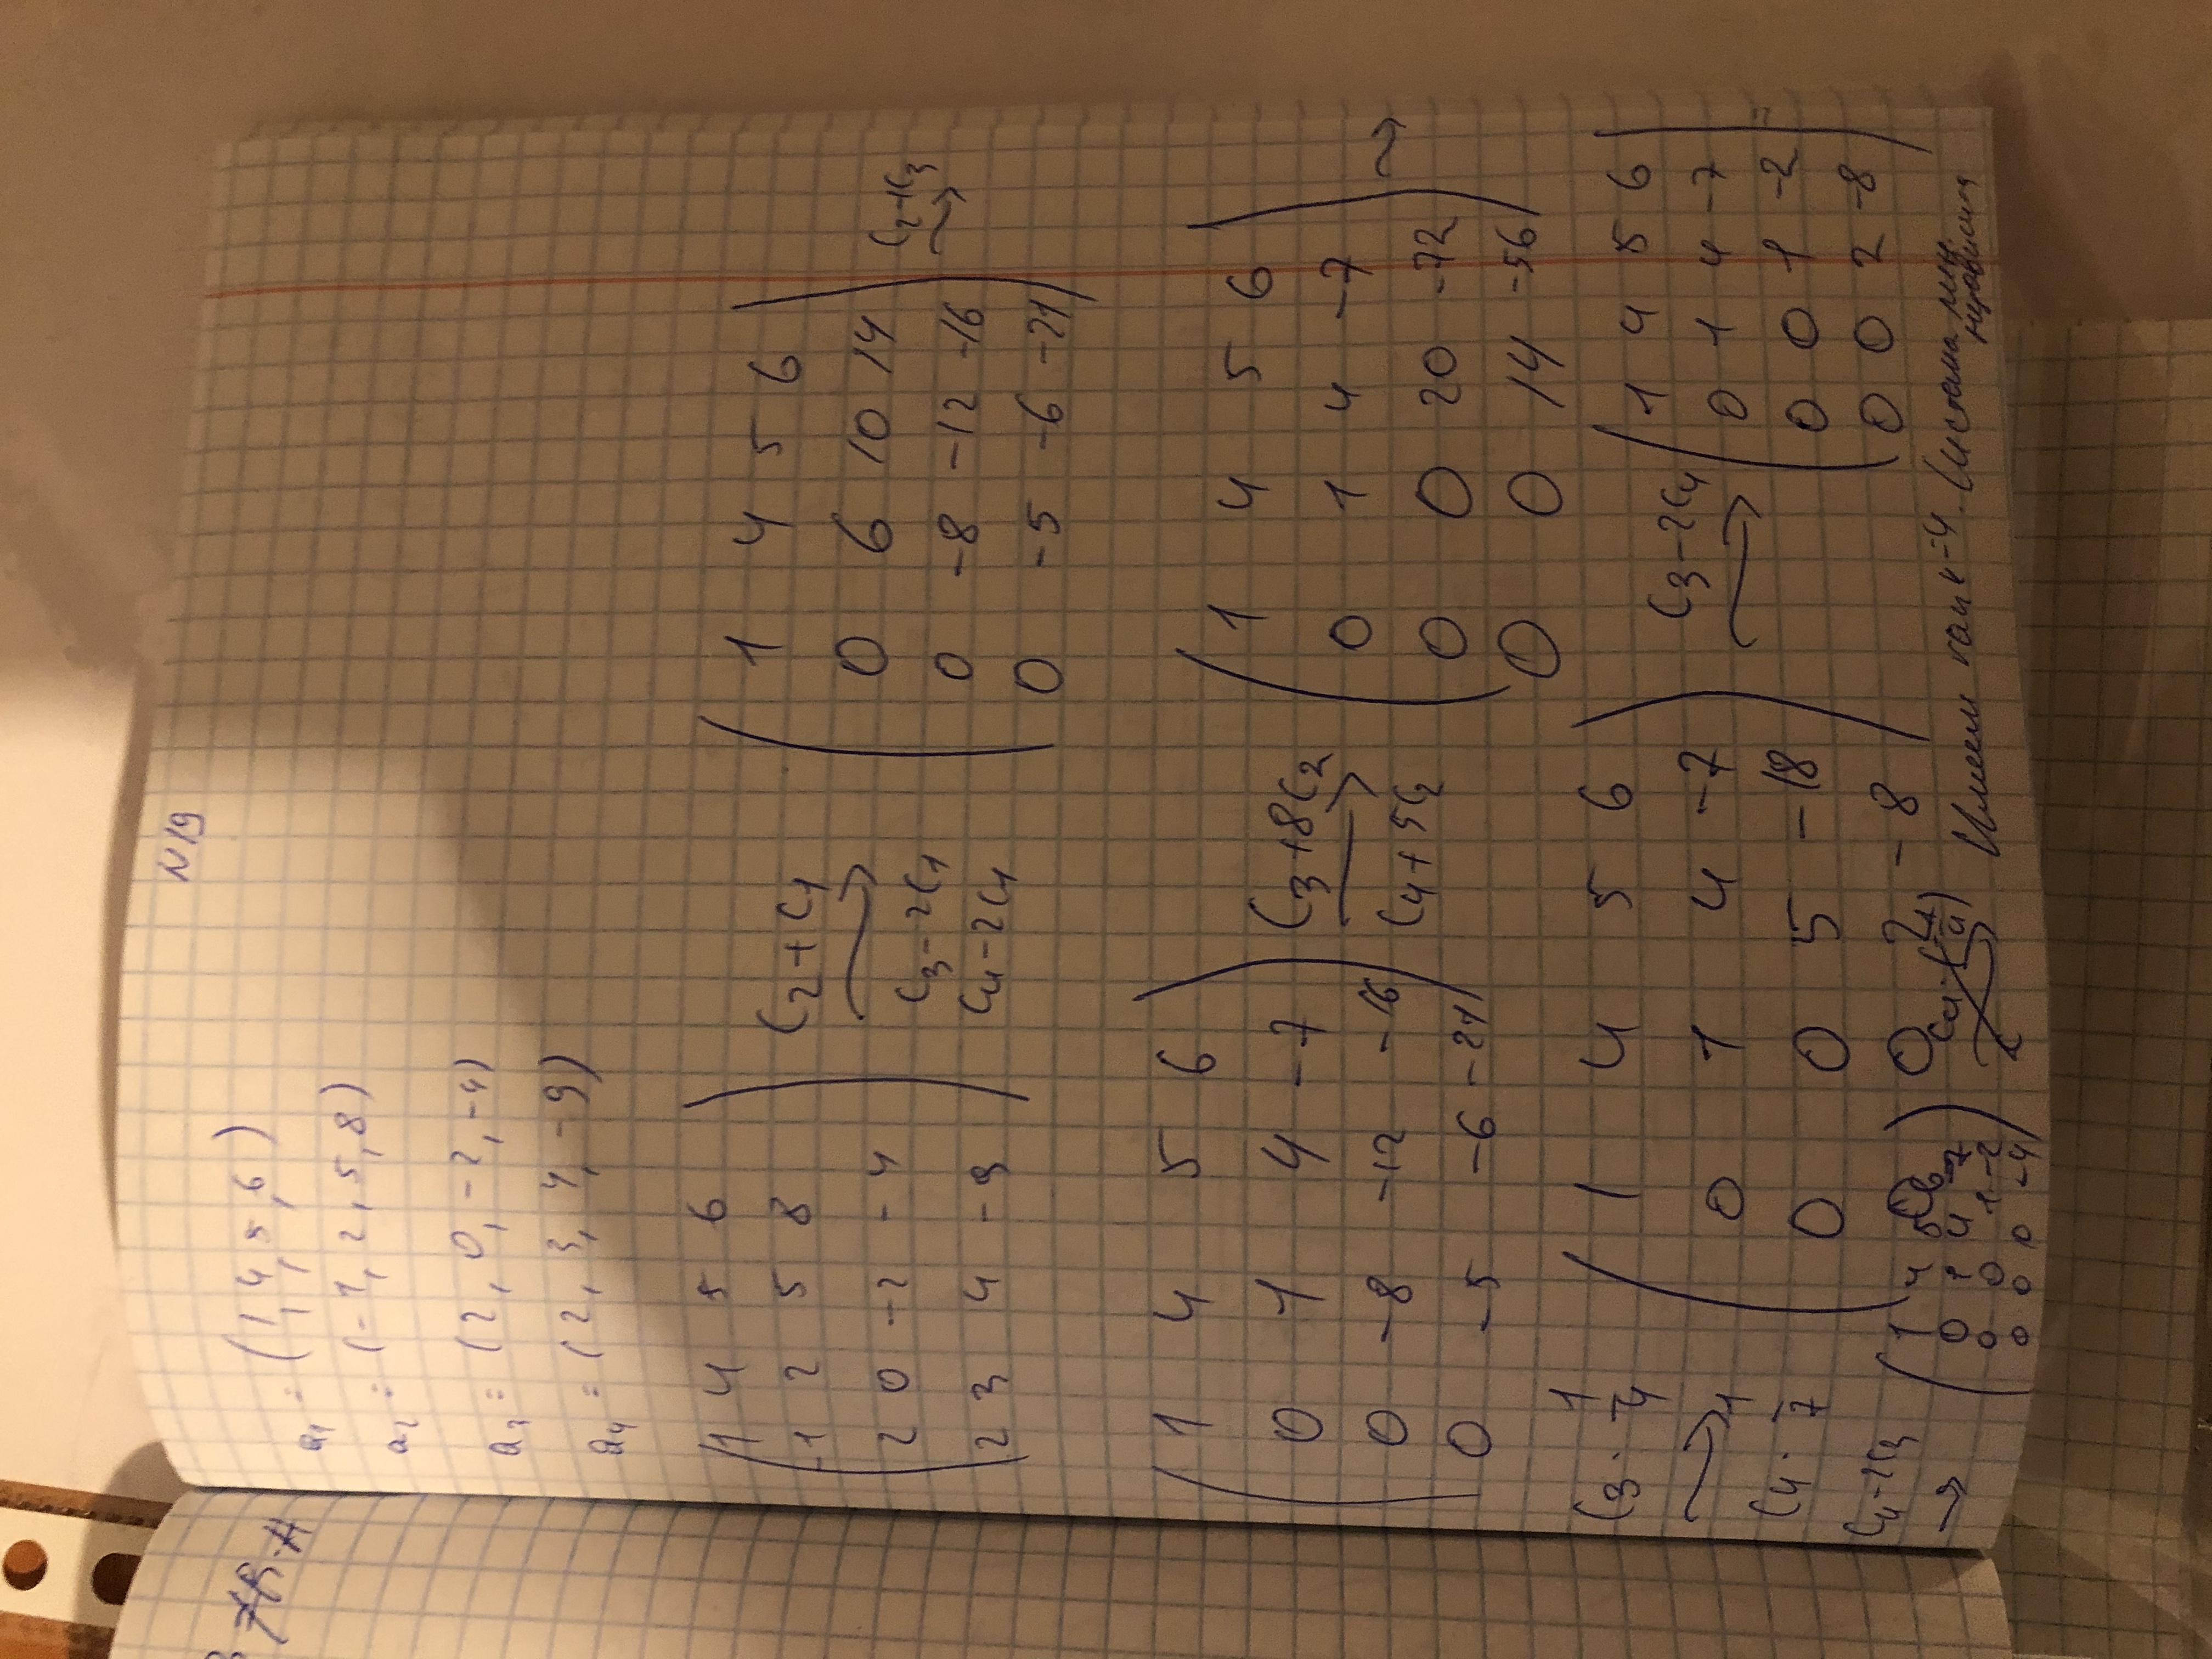 N19
a1 = (1, 4, 5, 6)
a2 = (-1, 2, 5, 8)
a3 = (2, 0, -2, -4)
a4 = (2, 3, 4, -9)
1 4 5 6
-1 2 5 8
2 0 -2 -4
2 3 4 -9
C2+C1
C3-2C1
C4-2C1
1 4 5 6
0 6 10 14
0 -8 -12 -16
0 -5 -6 -21
C2+C3
1 4 5 6
0 1 4 -7
0 -8 -12 -16
0 -5 -6 -21
C3+8C2
C4+5C2
1 4 5 6
0 1 4 -7
0 0 20 -72
0 0 14 -56
C3·1/4
C4·1/7
1 4 5 6
0 1 4 -7
0 0 5 -18
0 0 2 -8
C3-2C4
1 4 5 6
0 1 4 -7
0 0 1 -2
0 0 2 -8
=
C4-2C3
1 4 5 6
0 1 4 -7
0 0 1 -2
0 0 0 -4
Имеем ранг=4. Система лин. независима